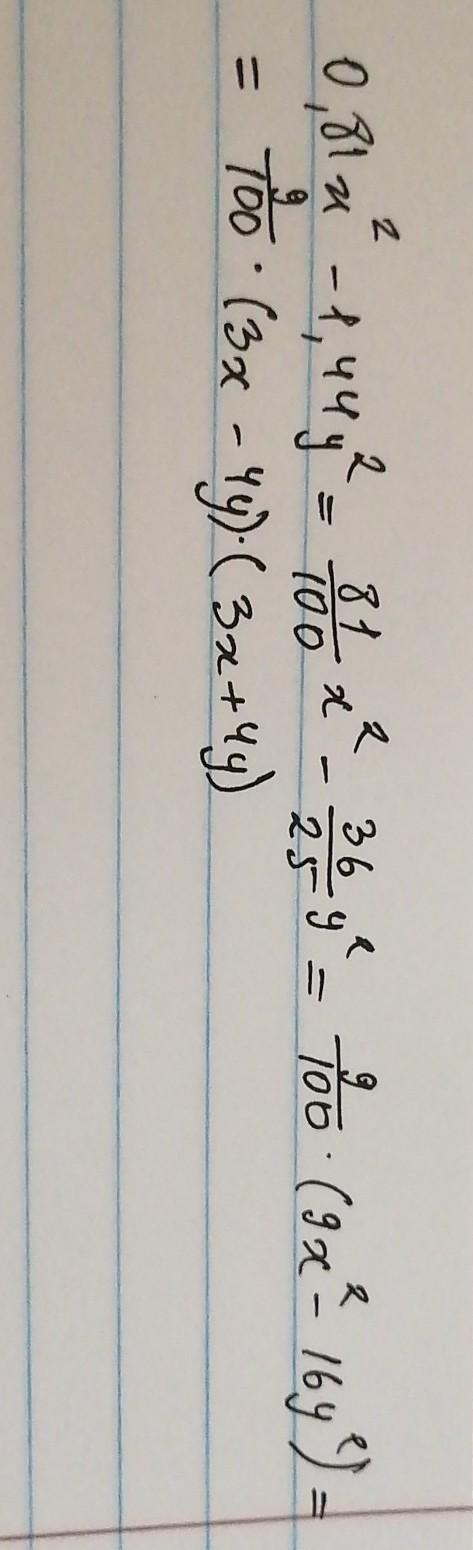 0,81x² - 1,44y² = 81/100 x² - 36/25 y² = 9/100 · (9x² - 16y²) =
= 9/100 · (3x - 4y) · (3x + 4y)